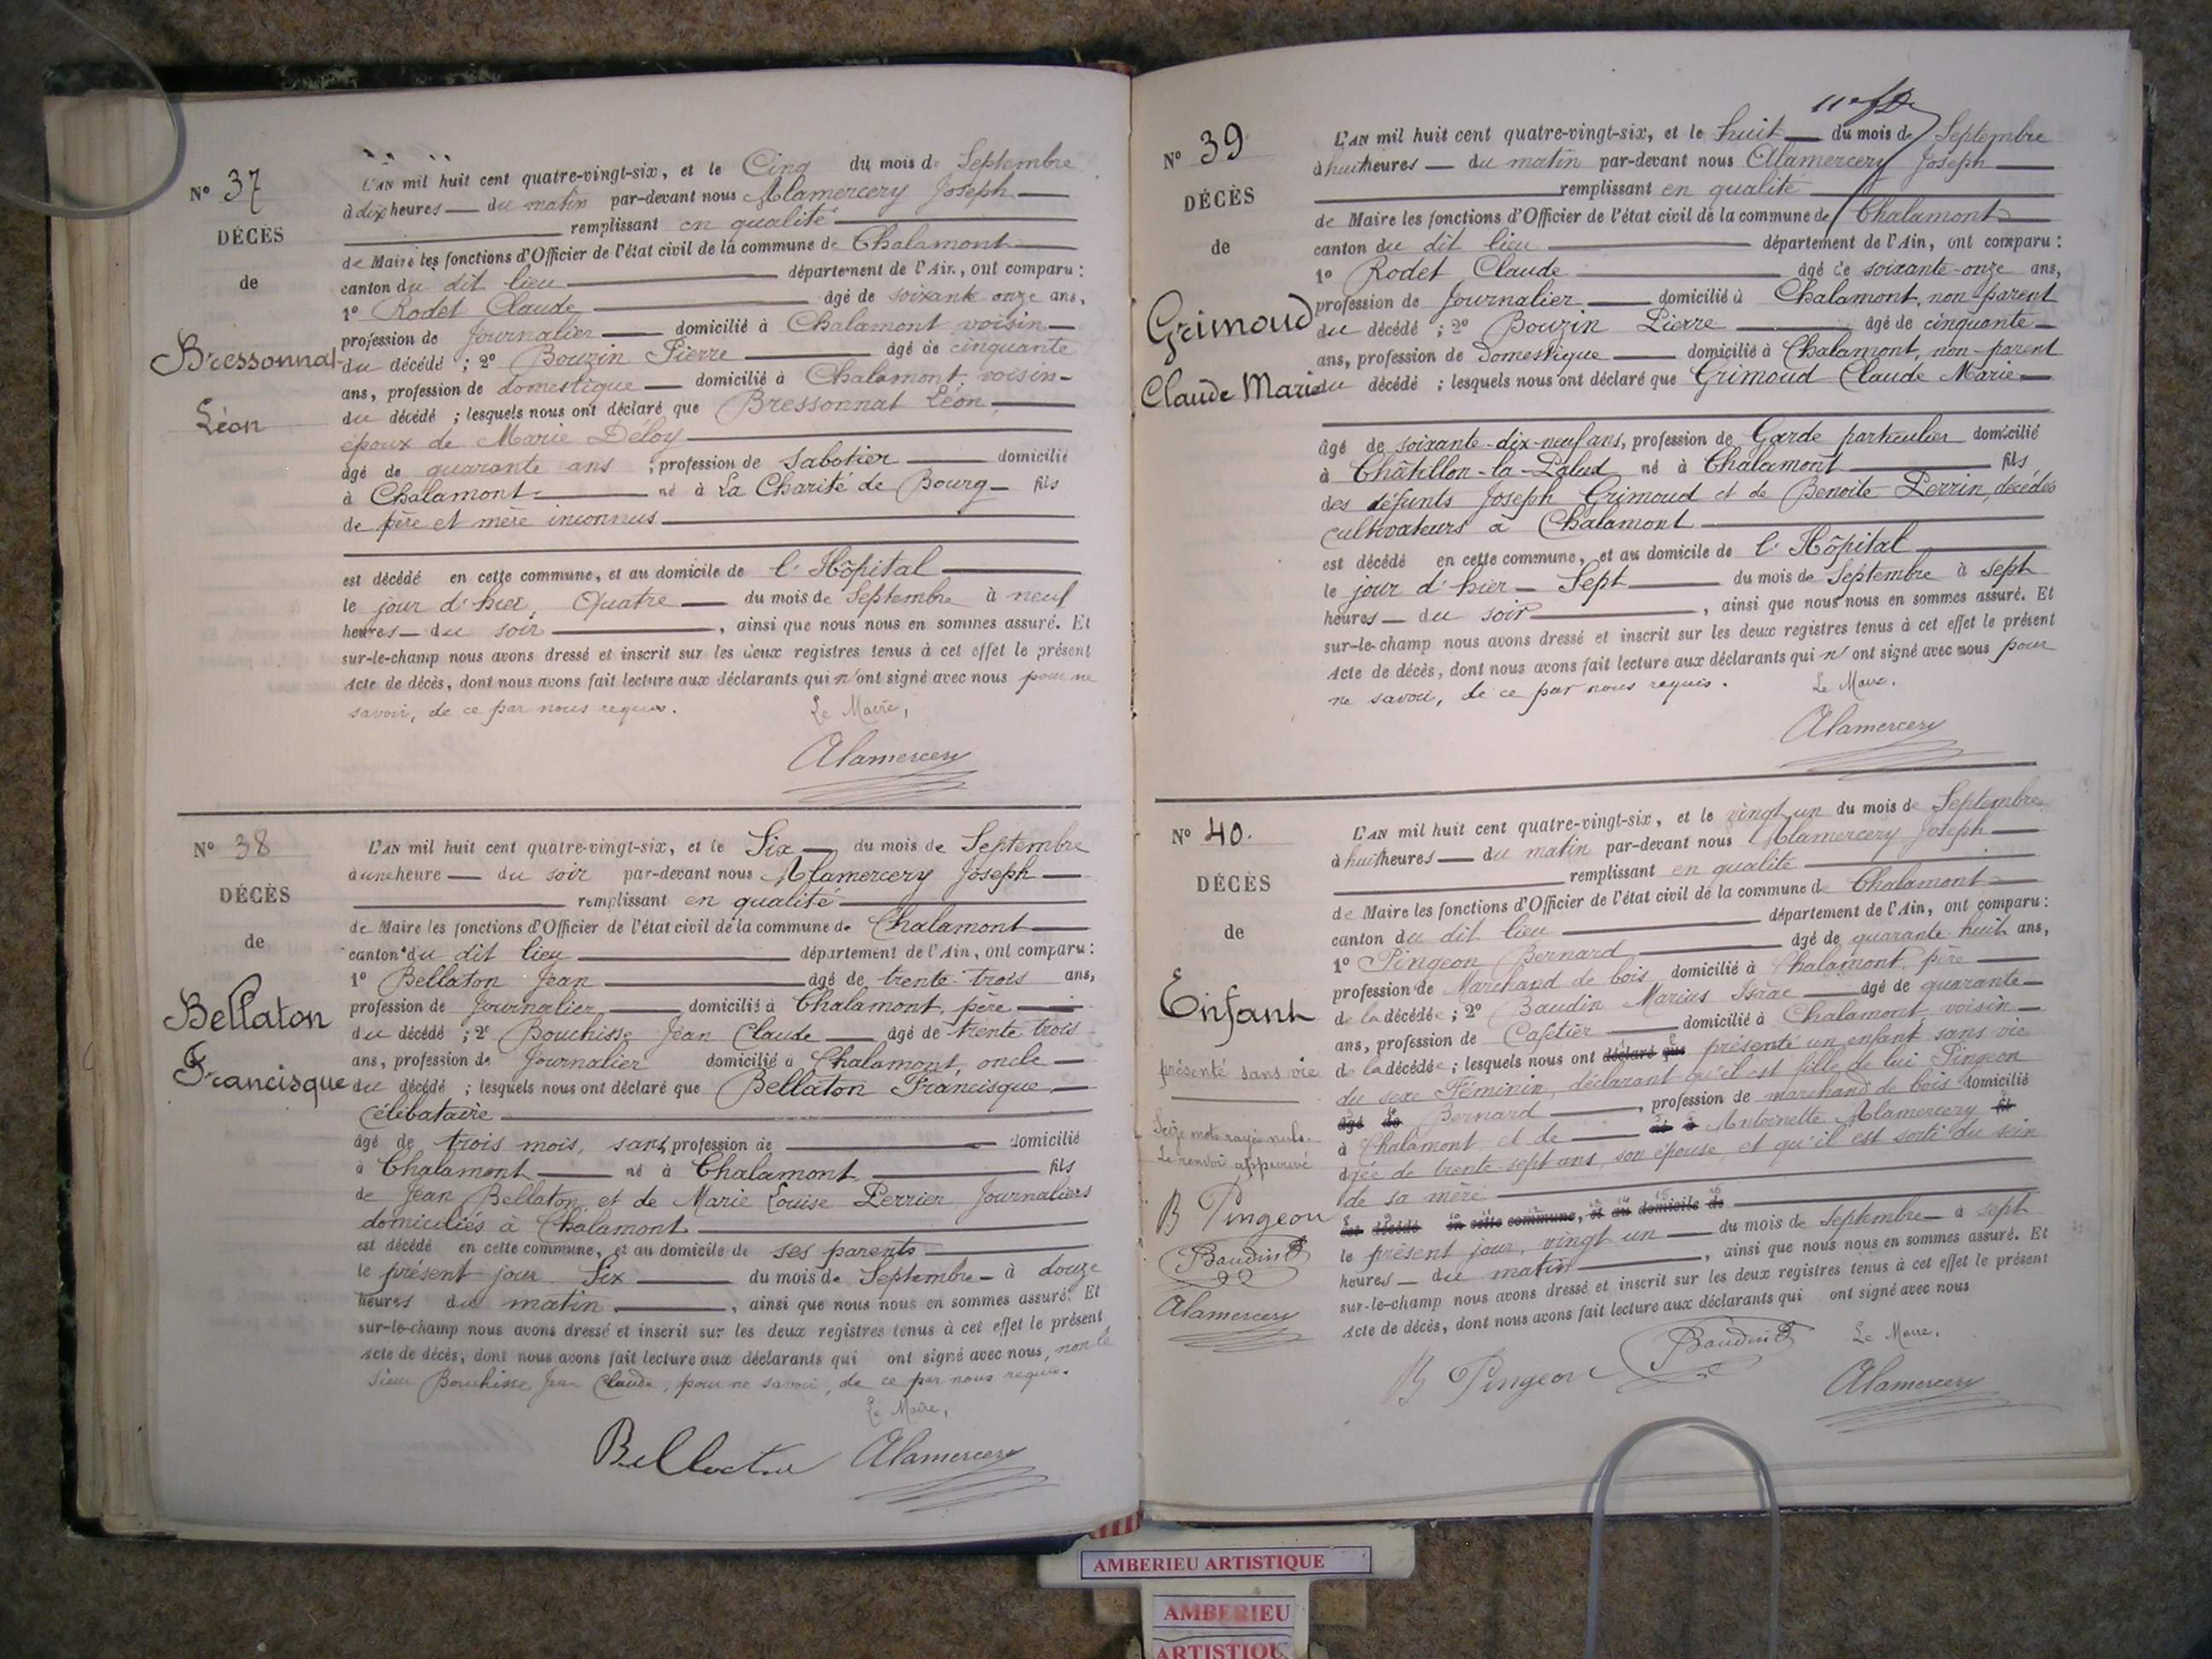 N° 37
DÉCÈS
de
Bressonnat
Léon
L'AN mil huit cent quatre-vingt-six, et le Cinq du mois de Septembre
à dix heures du matin par-devant nous Alamercery Joseph
remplissant en qualité
de Maire les fonctions d'Officier de l'état civil de la commune de Chalamont
canton du dit lieu département de l'Ain, ont comparu :
1° Rodet Claude âgé de soixante onze ans,
profession de Journalier domicilié à Chalamont voisin
du décédé ; 2° Bouzin Pierre âgé de cinquante
ans, profession de domestique domicilié à Chalamont, voisin
du décédé ; lesquels nous ont déclaré que Bressonnat Léon,
époux de Marie Déloy
âgé de quarante ans ; profession de Sabotier domicilié
à Chalamont né à La Charité de Bourg fils
de père et mère inconnus
est décédé en cette commune, et au domicile de l'Hôpital
le jour d'hier, Quatre du mois de Septembre à neuf
heures du soir , ainsi que nous nous en sommes assuré. Et
sur-le-champ nous avons dressé et inscrit sur les deux registres tenus à cet effet le présent
Acte de décès, dont nous avons fait lecture aux déclarants qui n'ont signé avec nous pour ne
savoir, de ce par nous requis.
Le Maire,
Alamercery
N° 38
DÉCÈS
de
Bellaton
Francisque
L'AN mil huit cent quatre-vingt-six, et le Six du mois de Septembre
à une heure du soir par-devant nous Alamercery Joseph
remplissant en qualité
de Maire les fonctions d'Officier de l'état civil de la commune de Chalamont
canton du dit lieu département de l'Ain, ont comparu :
1° Bellaton Jean âgé de trente-trois ans,
profession de Journalier domicilié à Chalamont, père
du décédé ; 2° Bouchisse Jean Claude âgé de trente trois
ans, profession de Journalier domicilié à Chalamont, oncle
du décédé ; lesquels nous ont déclaré que Bellaton Francisque
Célibataire
âgé de trois mois, sans profession de domicilié
à Chalamont né à Chalamont fils
de Jean Bellaton et de Marie Louise Perrier Journaliers
domiciliés à Chalamont
est décédé en cette commune, et au domicile de ses parents
le présent jour Six du mois de Septembre à douze
heures du matin , ainsi que nous nous en sommes assuré. Et
sur-le-champ nous avons dressé et inscrit sur les deux registres tenus à cet effet le présent
Acte de décès, dont nous avons fait lecture aux déclarants qui ont signé avec nous, non le
sieur Bouchisse Jean Claude, pour ne savoir, de ce par nous requis.
Le Maire,
Bellaton Alamercery
N° 39
DÉCÈS
de
Grimoud
Claude Marie
L'AN mil huit cent quatre-vingt-six, et le huit du mois de Septembre
à huit heures du matin par-devant nous Alamercery Joseph
remplissant en qualité
de Maire les fonctions d'Officier de l'état civil de la commune de Chalamont
canton du dit lieu département de l'Ain, ont comparu :
1° Rodet Claude âgé de soixante-onze ans,
profession de Journalier domicilié à Chalamont, non-parent
du décédé ; 2° Bouzin Pierre âgé de cinquante
ans, profession de Domestique domicilié à Chalamont, non-parent
du décédé ; lesquels nous ont déclaré que Grimoud Claude Marie
âgé de soixante-dix-neuf ans, profession de Garde particulier domicilié
à Châtillon-la-Palud né à Chalamont fils
des défunts Joseph Grimoud et de Benoite Perrin, décédés
cultivateurs à Chalamont
est décédé en cette commune, et au domicile de l'Hôpital
le jour d'hier Sept du mois de Septembre à sept
heures du soir , ainsi que nous nous en sommes assuré. Et
sur-le-champ nous avons dressé et inscrit sur les deux registres tenus à cet effet le présent
Acte de décès, dont nous avons fait lecture aux déclarants qui n'ont signé avec nous pour
ne savoir, de ce par nous requis.
Le Maire.
Alamercery
N° 40.
DÉCÈS
de
Enfant
présenté sans vie
Seize mots rayés nuls.
Le renvoi approuvé
B Pingeon
Baudin
Alamercery
L'AN mil huit cent quatre-vingt-six, et le vingt un du mois de Septembre
à huit heures du matin par-devant nous Alamercery Joseph
remplissant en qualité
de Maire les fonctions d'Officier de l'état civil de la commune de Chalamont
canton du dit lieu département de l'Ain, ont comparu :
1° Pingeon Bernard âgé de quarante huit ans,
profession de Marchand de bois domicilié à Chalamont, père
de la décédée ; 2° Baudin Marius Isaac âgé de quarante
ans, profession de Cafetier domicilié à Chalamont, voisin
de la décédée ; lesquels nous ont déclaré que présenté un enfant sans vie
du sexe Féminin, déclarant qu'il est fille de lui Pingeon
âgé de Bernard , profession de marchand de bois domicilié
à Chalamont et de Antoinette Alamercery
âgée de trente-sept ans, son épouse, et qu'il est sorti du sein
de sa mère
est décédé en cette commune, et au domicile de
le présent jour, vingt un du mois de Septembre à sept
heures du matin , ainsi que nous nous en sommes assuré. Et
sur-le-champ nous avons dressé et inscrit sur les deux registres tenus à cet effet le présent
Acte de décès, dont nous avons fait lecture aux déclarants qui ont signé avec nous
Le Maire.
B Pingeon Baudin Alamercery
AMBERIEU ARTISTIQUE
AMBERIEU
ARTISTIQUE